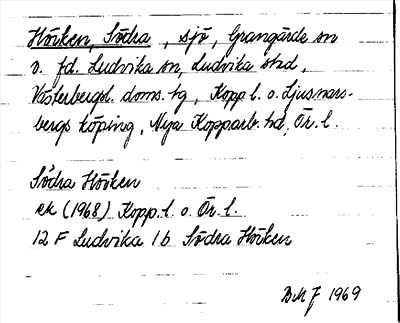 Hörken, Södra, sjö, Grangärde sn
o. fd. Ludvika sn, Ludvika stad,
Västerbergsl. doms. tg, Kopp. l. o. Ljusnars-
bergs köping, Nya Kopparb. hd, Ör. l.
Södra Hörken
ek (1968) Kopp. l. o. Ör. l.
12 F Ludvika 1 b Södra Hörken
1969